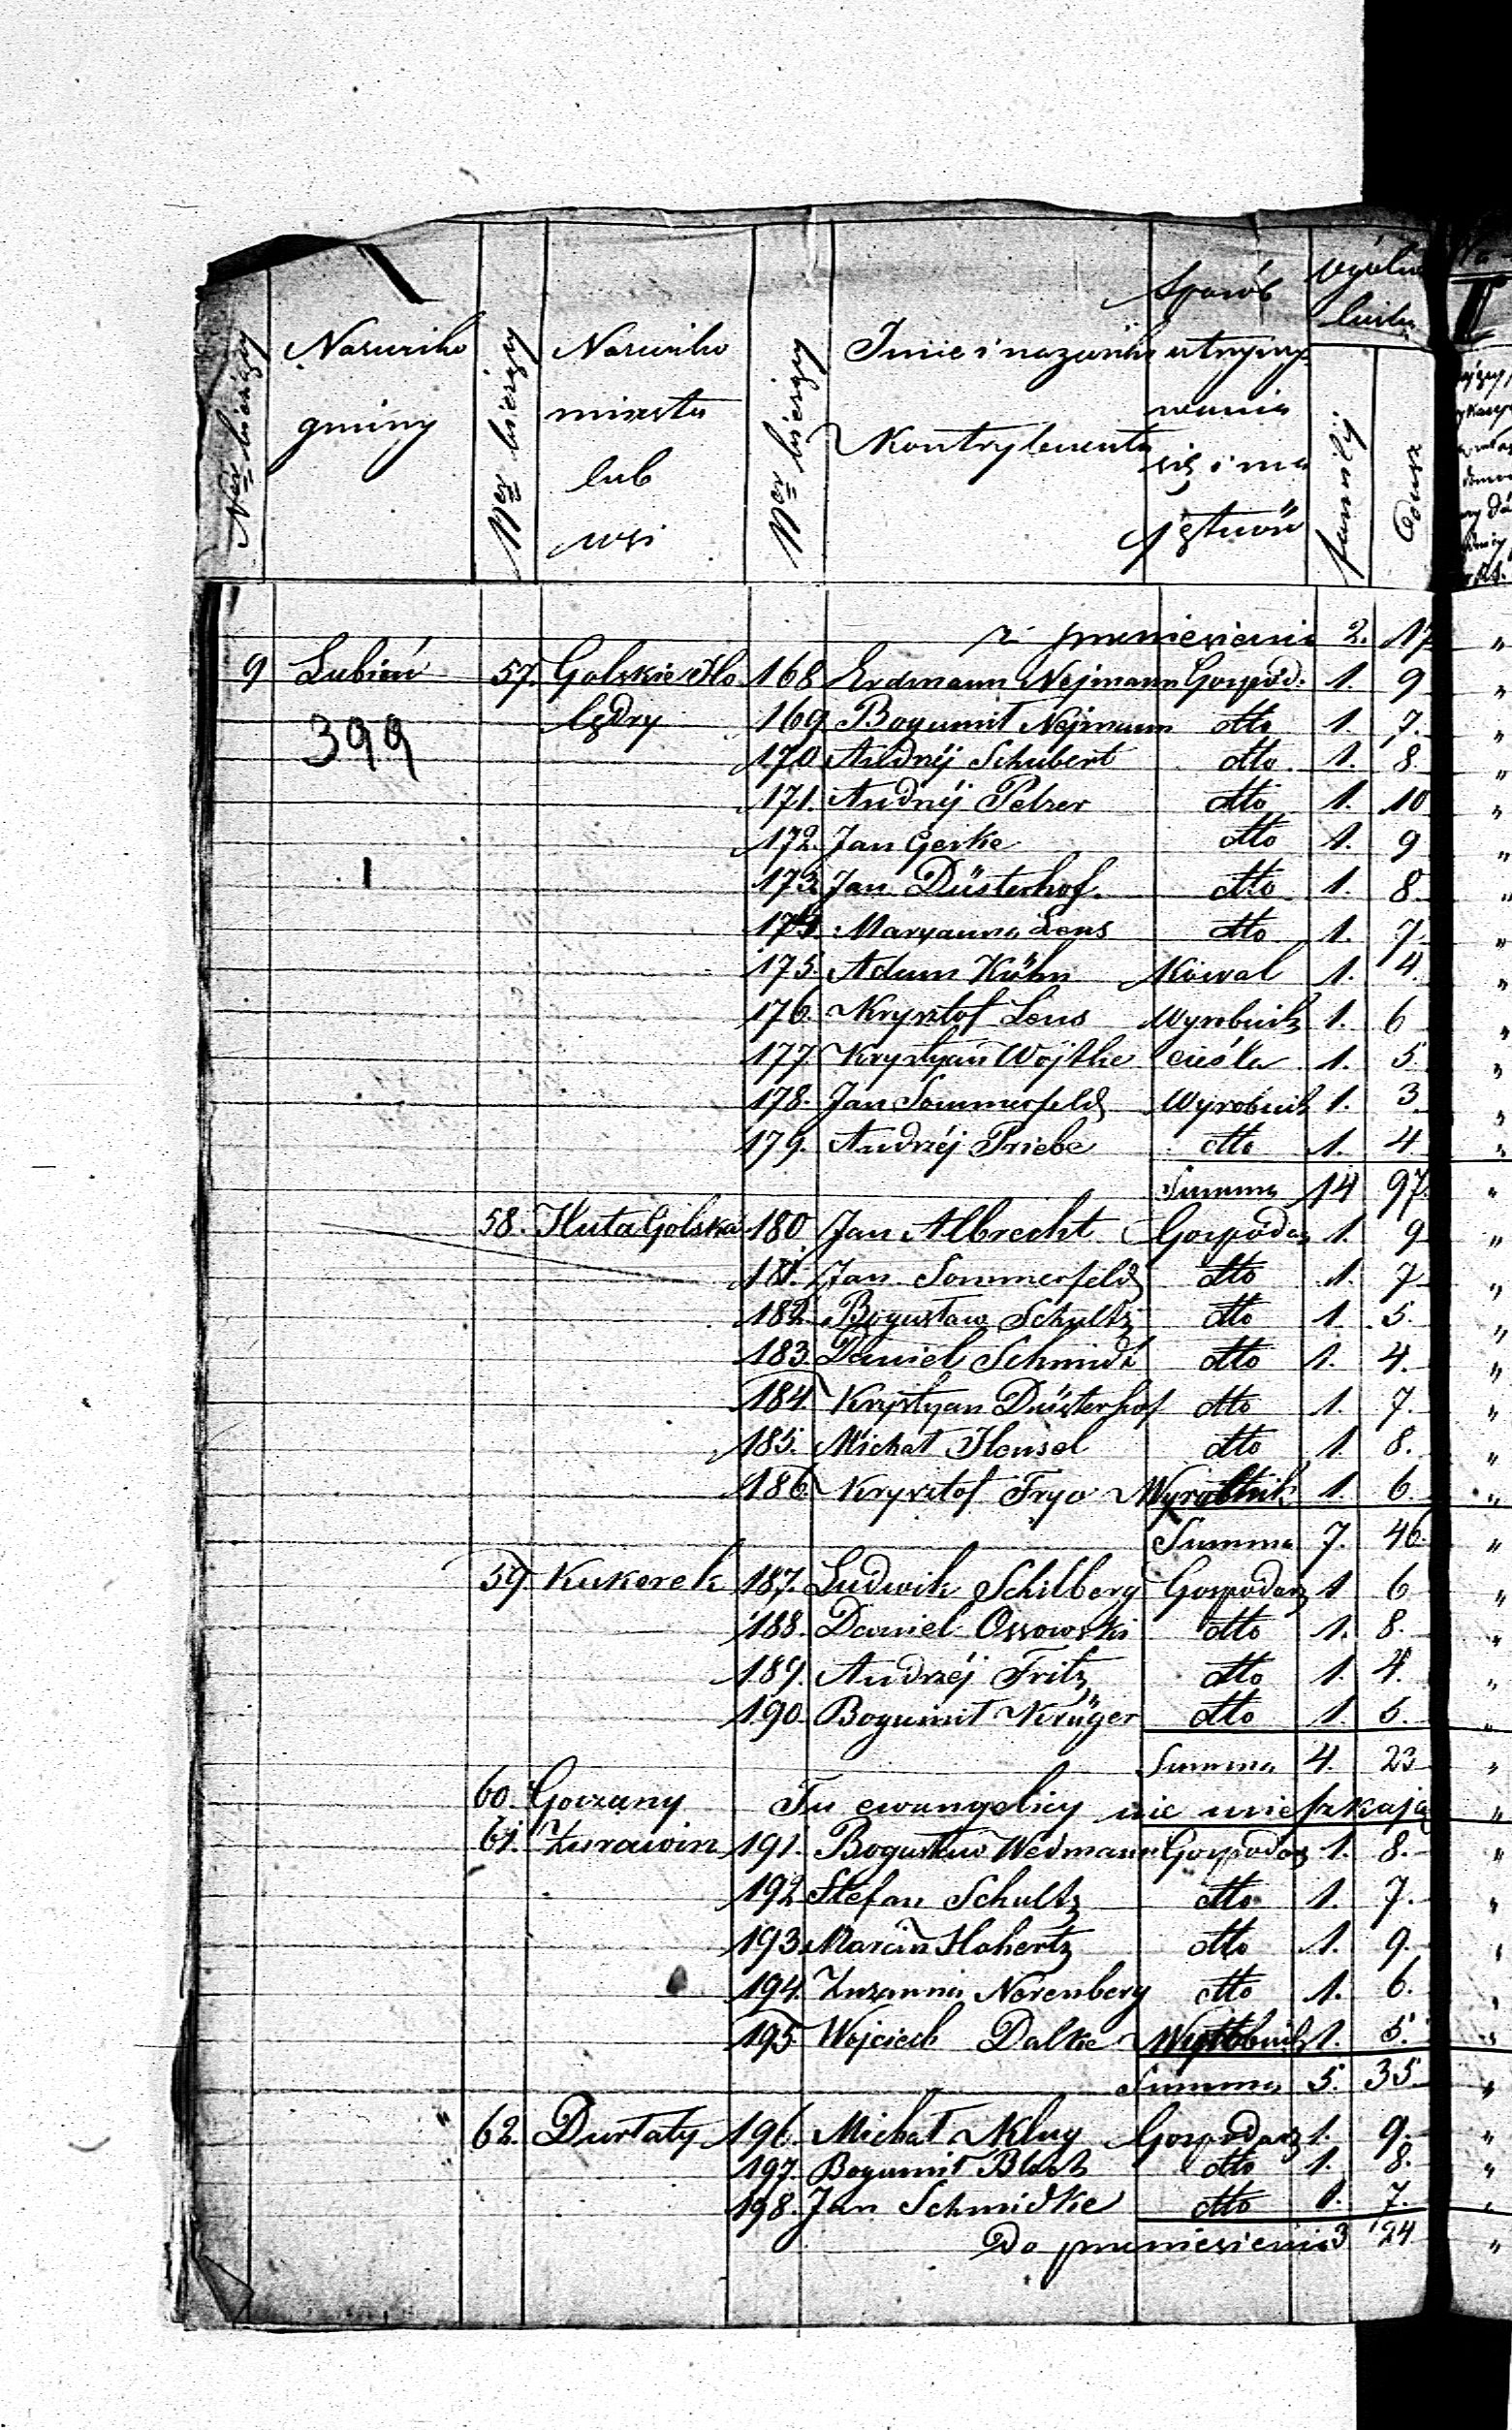 Ner bieżący
Nazwisko gminy
Ner bieżący
Nazwisko miasta lub wsi
Ner bieżący
Imie i nazwisko Kontrybuenta
Sposób utrzymywania się i ma
familij
Dusz
z przeniesienia 2. 17
9 Lubień 57. Golskie Ho 168 Erdmann Nejmann Gospod. 1. 9
399 lędry 169 Bogumił Nejmann dtto 1. 7.
170 Andrzéj Schubert dtto 1. 8.
171. Andrzéj Pelzer dtto 1. 10
172. Jan Gerke dtto 1. 9
173. Jan Düsterhof dtto 1. 8.
174. Maryanna Lens dtto 1. 7
175. Adam Kühn Kowal 1. 4.
176. Krysztof Lens Wyrobnik 1. 6
177. Krystyan Wojtke cieśla 1. 5
178. Jan Sommerfeld Wyrobnik 1. 3
179. Andrzéj Priebe dtto 1. 4
Summa 14 97.
58. Huta Golska 180 Jan Albrecht Gospodarz 1. 9
181. Jan Sommerfeld dtto 1. 7
182. Bogusław Schultz dtto 1 5.
183. Daniel Schmidt dtto 1. 4.
184. Krystyan Düsterhof dtto 1. 7.
185. Michał Hensel dtto 1 8.
186. Krysztof Wyrobnik 1. 6.
Summa 7. 46.
59. Kukorek 187. Ludwik Schilberg Gospodarz 1 6
188. Daniel Ossowski dtto 1. 8.
189. Andrzéj Fritz dtto 1. 4.
190. Bogumił Krüger dtto 1. 5.
Summa 4. 23
60. Gorzany Tu ewangelicy nie mieszkają
61. Żurawin 191. Bogusław Wedmann Gospodarz 1. 8.
192 Stefan Schultz dtto 1. 7.
193. Marcin Hohertz dtto 1. 9.
194. Zuzanna Norenberg dtto 1. 6.
195. Wojciech Dalke Wyrobnik 1. 5.
Summa 5. 35.
" 62. Durlaty 196. Michał Kluy Gospodarz 1. 9.
197. Bogumił dtto 1. 8.
198. Jan Schmidke dtto 1. 7.
Do przeniesienia 3 24